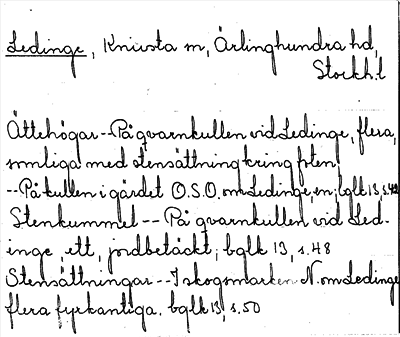 Ledinge, Knivsta sn, Ärlinghundra hd,
Stockh.l
Ättehögar -- På qvarnkullen vid Ledinge, flera,
somliga med stensättning kring foten;
-- På kullen i gärdet O.S.O. om Ledinge, en; bqlk 13, s.48
Stenkummel -- På qvarnkullen vid Led-
inge, ett, jordbetäckt; bqlk 13, s.48
Stensättningar -- I skogsmarken N. om Ledinge
flera fyrkantiga. bqlk 13, s.50